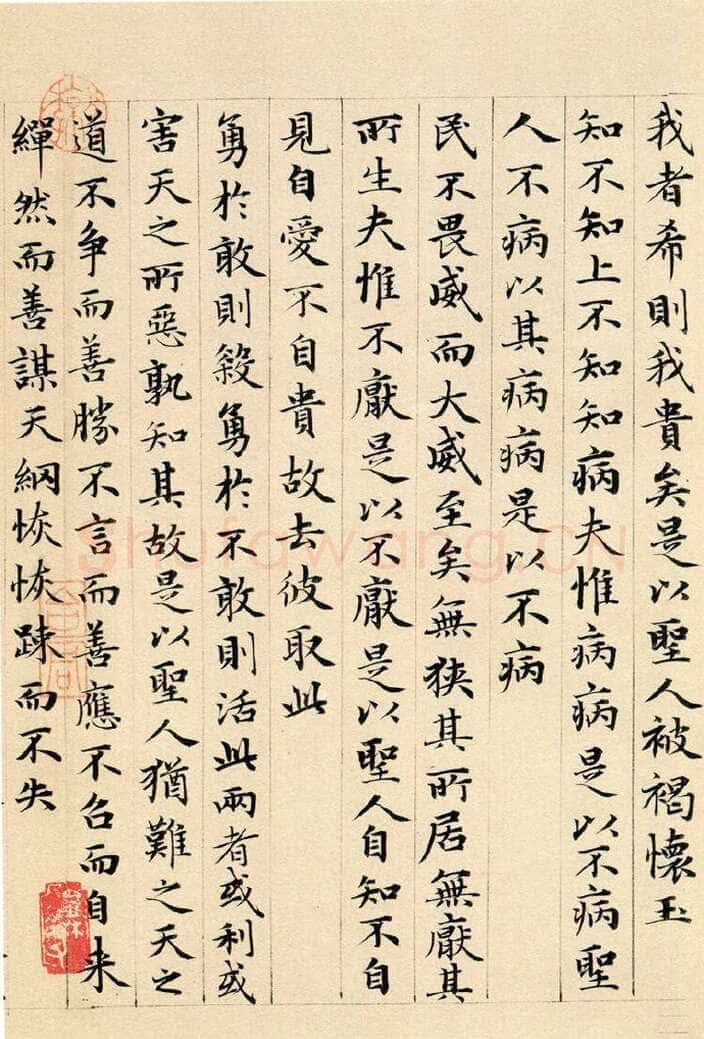 我者希則我貴矣是以聖人被褐懷玉
知不知上不知知病夫惟病病是以不病聖
人不病以其病病是以不病
民不畏威而大威至矣無狹其所居無厭其
所生夫惟不厭是以不厭是以聖人自知不自
見自愛不自貴故去彼取此
勇於敢則殺勇於不敢則活此兩者或利或
害天之所惡孰知其故是以聖人猶難之天之
道不争而善勝不言而善應不召而自来
繟然而善謀天綱恢恢踈而不失
Shufawang.CN